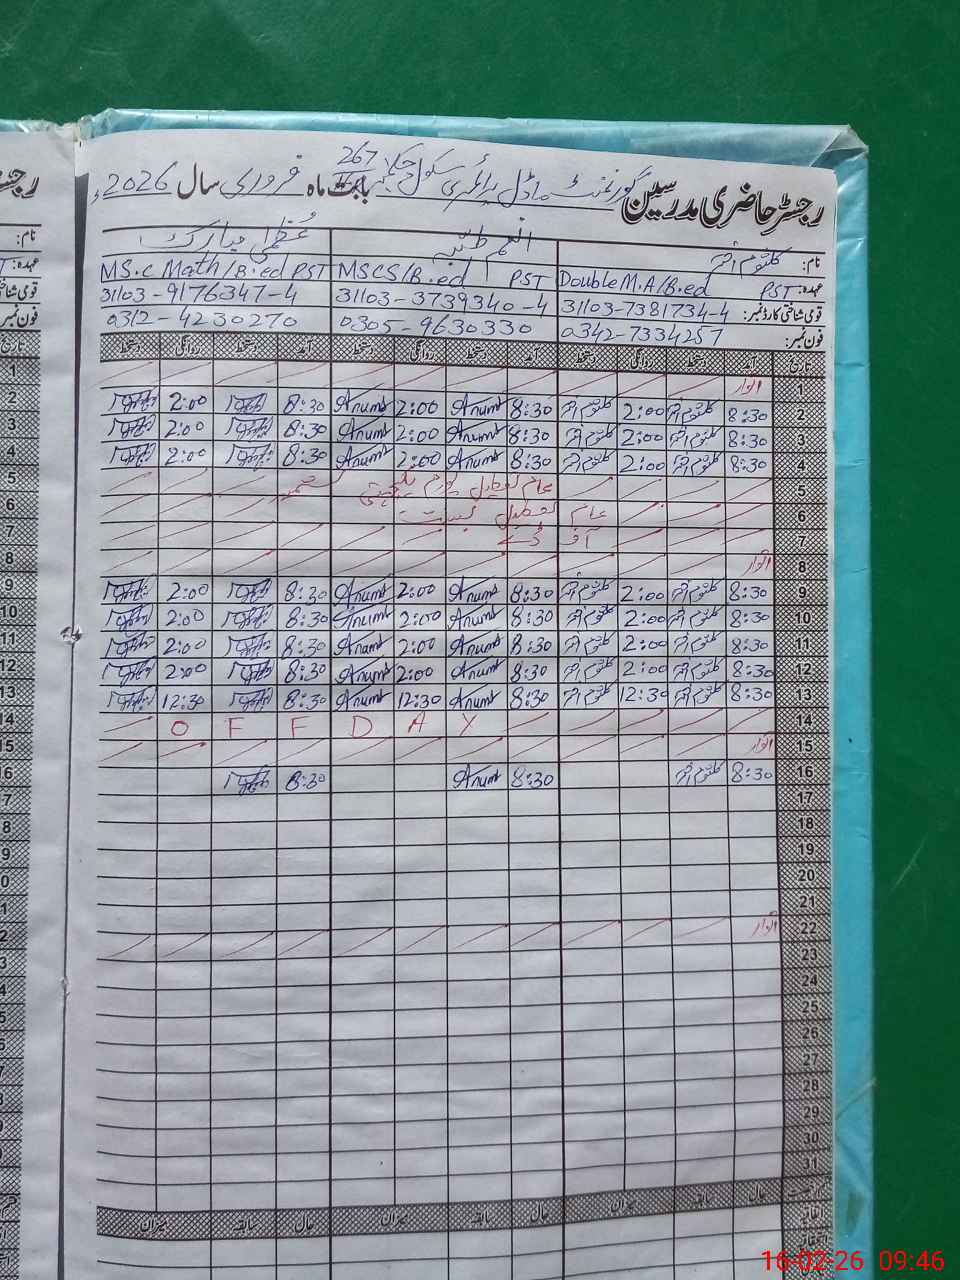 رجسٹر حاضری مدرسین گورنمنٹ ماڈل پرائمری سکول چک 267 بابت ماہ فروری سال 2026ء
نام: کلثوم اختر انعم طیبہ عظمیٰ مبارک
عہدہ: PST Double M.A/B.ed PST MSCS/B.ed PST MS.c Math/B.ed
قومی شناختی کارڈ نمبر: 31103-7381734-4 31103-3739340-4 31103-9176347-4
فون نمبر: 0342-7334257 0305-9630330 0312-4230270
تاریخ آمد دستخط روانگی دستخط آمد دستخط روانگی دستخط آمد دستخط روانگی دستخط
1 اتوار
2 8:30 کلثوم اختر 2:00 کلثوم اختر 8:30 Anumt 2:00 Anumt 8:30 2:00
3 8:30 کلثوم اختر 2:00 کلثوم اختر 8:30 Anumt 2:00 Anumt 8:30 2:00
4 8:30 کلثوم اختر 2:00 کلثوم اختر 8:30 Anumt 2:00 Anumt 8:30 2:00
5 عام تعطیل یوم یکجہتی کشمیر
6 عام تعطیل بسنت
7 آف ڈے
8 اتوار
9 8:30 کلثوم اختر 2:00 کلثوم اختر 8:30 Anumt 2:00 Anumt 8:30 2:00
10 8:30 کلثوم اختر 2:00 کلثوم اختر 8:30 Anumt 2:00 Anumt 8:30 2:00
11 8:30 کلثوم اختر 2:00 کلثوم اختر 8:30 Anumt 2:00 Anumt 8:30 2:00
12 8:30 کلثوم اختر 2:00 کلثوم اختر 8:30 Anumt 2:00 Anumt 8:30 2:00
13 8:30 کلثوم اختر 12:30 کلثوم اختر 8:30 Anumt 12:30 Anumt 8:30 12:30
14 O F F D A Y
15 اتوار
16 8:30 کلثوم اختر 8:30 Anumt 8:30
17
18
19
20
21
22 اتوار
23
24
25
26
27
28
29
30
31
حال سابقہ میزان حال سابقہ میزان حال سابقہ میزان
16-02-26 09:46